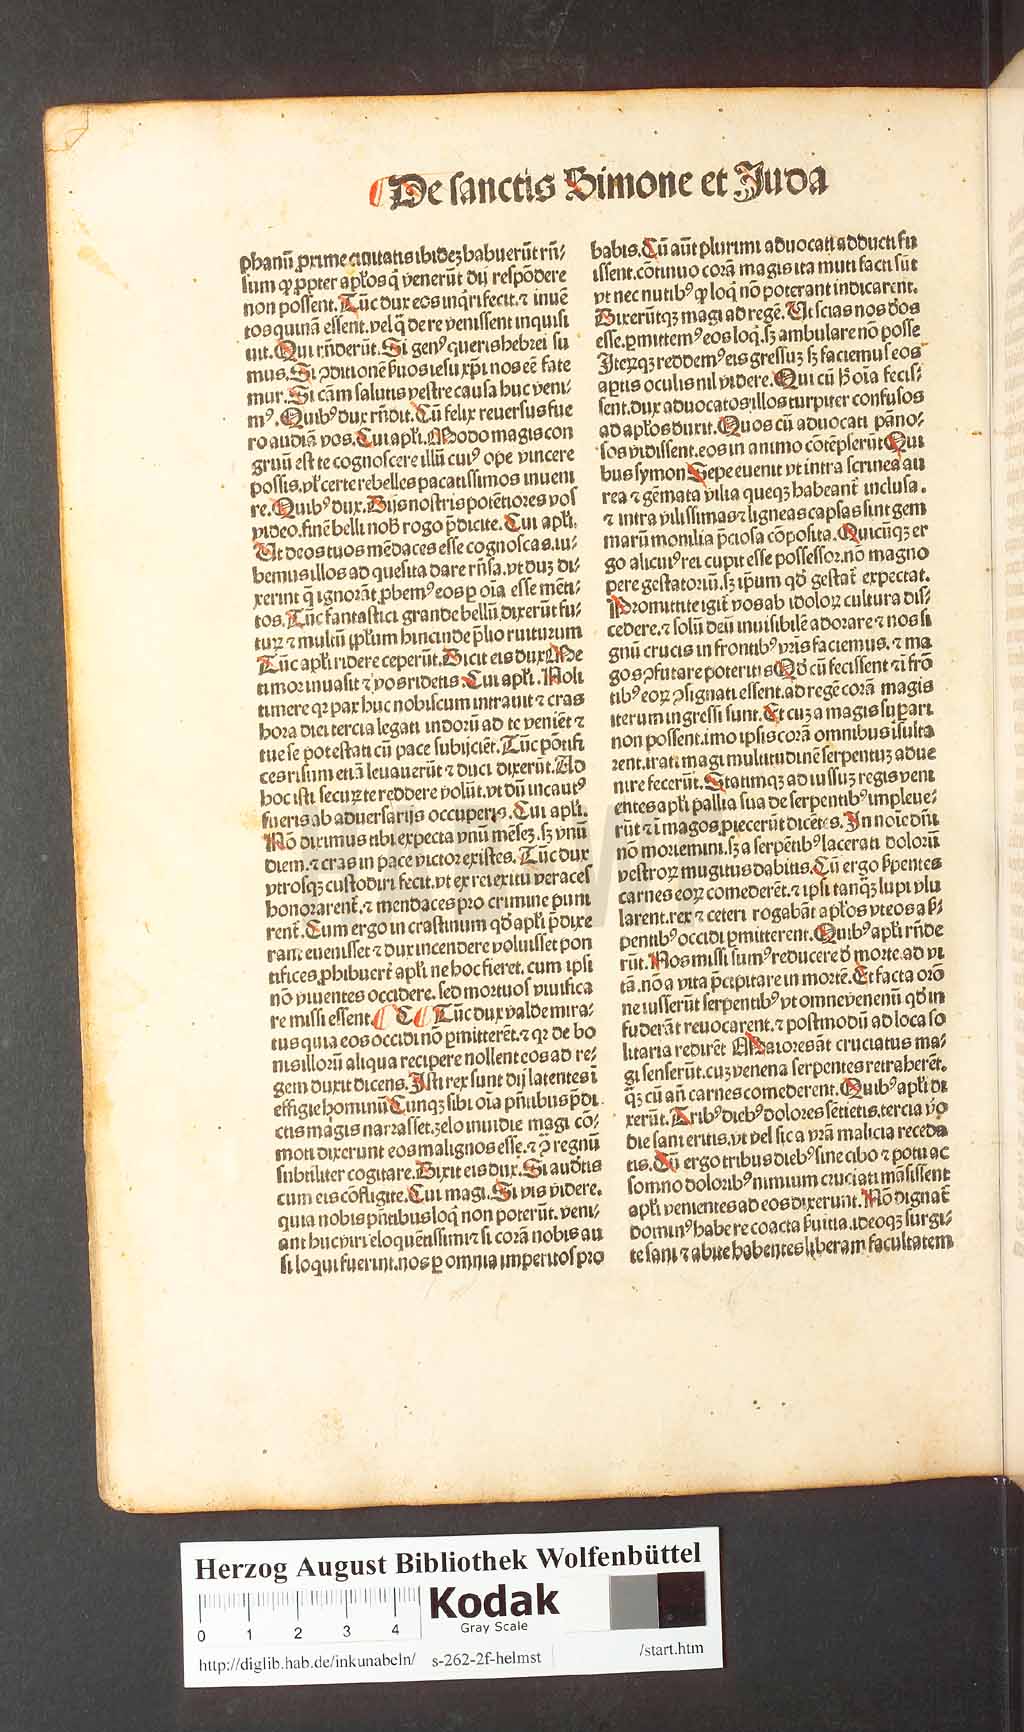 De sanctis Simone et Juda
phanū ꝓxime ciuitatis ibideʒ habuerūt rn̄-
sum ꝙ ꝓpter apl'os q̇ venerūt dij respōdere
non possent. Tūc dux eos inq̇ri fecit. ⁊ inuē
tos quinā essent. vel q̇ de re venissent inquisi
uit. Qui rn̄derūt. Si genꝰ queris hebrei su
mus. Si ꝯditionē ẜuos iesu xp̄i nos eē fate
mur. Si cām salutis vestre causa huc veni-
mꝰ. Quibꝰ dux rn̄dit. Cū felix reuersus fue
ro audiā vos. Cui apl'i. Modo magis con
gruū est te cognoscere illū cuiꝰ ope vincere
possis. vl' certe rebelles pacatissimos inueni
re. Quibꝰ dux. Dijs nostris potētiores vos
video. finē belli nob̄ rogo p̄dicite. Cui apl'i.
Ut deos tuos mēdaces esse cognoscas. iu-
bemus illos ad quesita dare rn̄sa. vt duʒ di-
xerint q̄ ignorāt ꝓbemꝰ eos ꝑ oīa esse mēti-
tos. Tūc fantastici grande bellū dixerūt fu-
turꝝ ⁊ multū ppl'um hincinde p̄lio ruiturum
Tūc apl'i ridere ceperūt. Dicit eis dux. Me
timor inuasit ⁊ vos ridetis. Cui apl'i. Noli
timere qꝛ pax huc nobiscum intrauit ⁊ cras
hora diei tercia legati indorū ad te veniēt ⁊
tue se potestati cū pace subijciēt. Tūc pōtifi
ces risum etiā leuauerūt ⁊ duci dixerūt. Ad
hoc isti securꝝ te reddere volūt. vt dū incautꝰ
fueris ab aduersarijs occuperis. Cui apl'i.
Nō diximus tibi expecta vnū mēseʒ. sʒ vnū
diem. ⁊ cras in pace victor existes. Tūc dux
vtrosqʒ custodiri fecit. vt ex rei exitu veraces
honorarent̄. ⁊ mendaces pro crimine puni
rent̄. Cum ergo in crastinum qd̄ apl'i p̄dixe
rant euenisset ⁊ dux incendere voluisset pon
tifices ꝓhibuerūt apl'i ne hoc fieret. cum ipsi
nō viuentes occidere. sed mortuos viuifica
re missi essent C Tūc dux valde mira-
tus quia eos occidi nō ꝑmitterēt. ⁊ qꝛ de bo
nis illorū aliqua recipere nollent eos ad re-
gem duxit dicens. Isti rex sunt dij latentes ī
effigie hominū Cunqʒ sibi oīa pn̄tibus p̄di
ctis magis narrasset. zelo inuidie magi cō-
moti dixerunt eos malignos esse. ⁊ ꝯ̄ regnū
subtiliter cogitare. Dixit eis dux. Si audetis
cum eis cōfligite. Cui magi. Si vis videre.
quia nobis pn̄tibus loqͥ non poterūt. veni-
ant huc viri eloquētissimi ⁊ si corā nobis au
si loqui fuerint. nos ꝑ omnia imperitos pro
babis. Cū aūt plurimi aduocati adducti fu
issent. cōtinuo corā magis ita muti facti sūt
vt nec nutibꝰ ꝙ loqͥ nō poterant indicarent.
Dixerūtqʒ magi ad regē. Ut scias nos deos
esse. ꝑmittemꝰ eos loqͥ. sʒ ambulare nō posse
Iterꝝqʒ reddemꝰ eis gressuʒ sʒ faciemus eos
aptis oculis nil videre. Qui cū h̄ oīa fecis-
sent. dux aduocatos illos turpiter confusos
ad apl'os duxit. Quos cū aduocati pāno-
sos vidissent. eos in animo cōtēpserūt Qui
bus symon Sepe euenit vt intra scrinea au
rea ⁊ gēmata vilia queqʒ habeant̄ inclusa.
⁊ intra vilissimas ⁊ ligneas capsas sint gem
marū monilia p̄ciosa cōposita. Quicūqʒ er
go alicuiꝰ rei cupit esse possessor. nō magno
pere gestatoriū. sʒ ip̄um qd̄ gestat̄ expectat.
Promittite igit̄ vos ab idoloꝝ cultura dis-
cedere. ⁊ solū deū inuisibilē adorare ⁊ nos si
gnū crucis in frontibꝰ vr̄is faciemus. ⁊ ma
gos ꝯfutare poteritis Qd̄ cū fecissent ⁊ ī frō
tibꝰ eoꝝ ꝯsignati essent. ad regē corā magis
iterum ingressi sunt. Et cuʒ a magis supari
non possent. imo ipsis corā omnibus īsulta
rent. irati magi multitudinē serpentuʒ adue
nire fecerūt. Statimqʒ ad iussuʒ regis veni
entes apl'i pallia sua de serpentibꝰ impleue-
rūt ⁊ ī magos ꝓiecerūt dicētes. In noīe dn̄i
nō moriemini. sʒ a serpētibꝰ lacerati dolorū
vestroꝝ mugitus dabitis. Cū ergo ẜpentes
carnes eoꝝ comederēt. ⁊ ipsi tanqʒ lupi vlu
larent. rex ⁊ ceteri rogabāt apl'os vt eos a ẜ-
pentibꝰ occidi ꝑmitterent. Quibꝰ apl'i rn̄de
rūt. Nos missi sumꝰ reducere d̄ morte ad vi
tā. nō a vita p̄cipitare in mortē. Et facta orō
ne iusserūt serpentibꝰ vt omne venenū qd̄ in
fuderāt reuocarent. ⁊ postmodū ad loca so
litaria redirēt Maiores āt cruciatus ma-
gi senserūt. cuʒ venena serpentes retraherēt.
q̄ʒ cū an̄ carnes comederent. Quibꝰ apl'i di
xerūt. Tribꝰ diebꝰ dolores sētietis. tercia v̊o
die sani eritis. vt vel sic a vr̄a malicia receda
tis. Cū ergo tribus diebꝰ sine cibo ⁊ potu ac
somno doloribꝰ nimium cruciati māsissent
apl'i venientes ad eos dixerunt. Nō dignat̄
dominꝰ habere coacta ẜuitia. ideoqʒ surgi-
te sani ⁊ abite habentes liberam facultatem
Herzog August Bibliothek Wolfenbüttel
0 1 2 3 4
Kodak
Gray Scale
http://diglib.hab.de/inkunabeln/ s-262-2f-helmst /start.htm